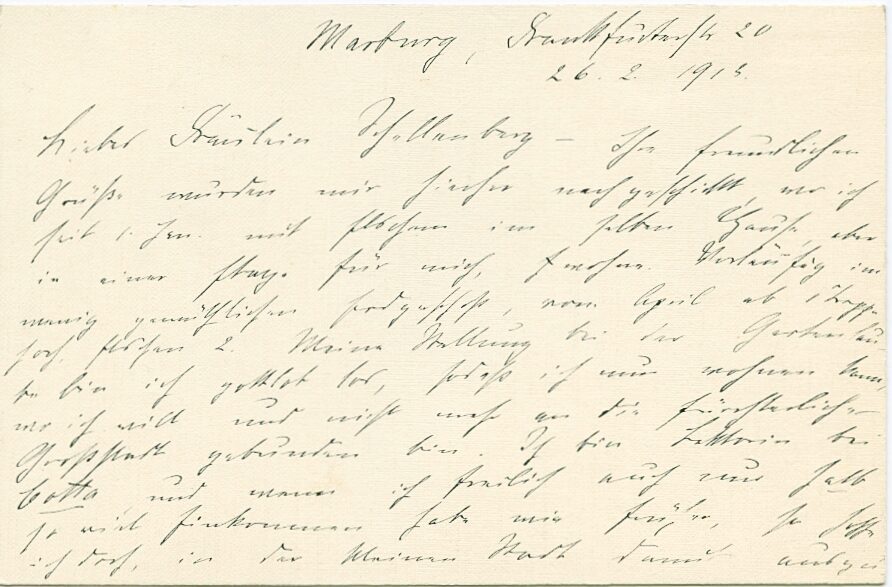 Marburg, Frankfurterstr 20
26. 2. 1913.
Liebes Fräulein Schellenberg – Ihre freundlichen
Grüße wurden mir hierher nachgeschickt, wo ich
seit 1. Jan. mit im selben Hause, aber
in einer Etage für mich, wohne. Vorläufig im
wenig gemütlichen Erdgeschoß, vom April ab 1 Treppe
hoch, 2. Meine Stellung bei der Gartenlau
be bin ich gottlob los, sodaß ich nun wohnen kann,
wo ich will und nicht mehr an die fürchterliche
Großstadt gebunden bin. Ich bin Lektorin bei
Cotta, und wenn ich freilich auch nur halb
so viel Einkommen habe wie früher, so hoffe
ich doch, in der kleinen Stadt damit auszu